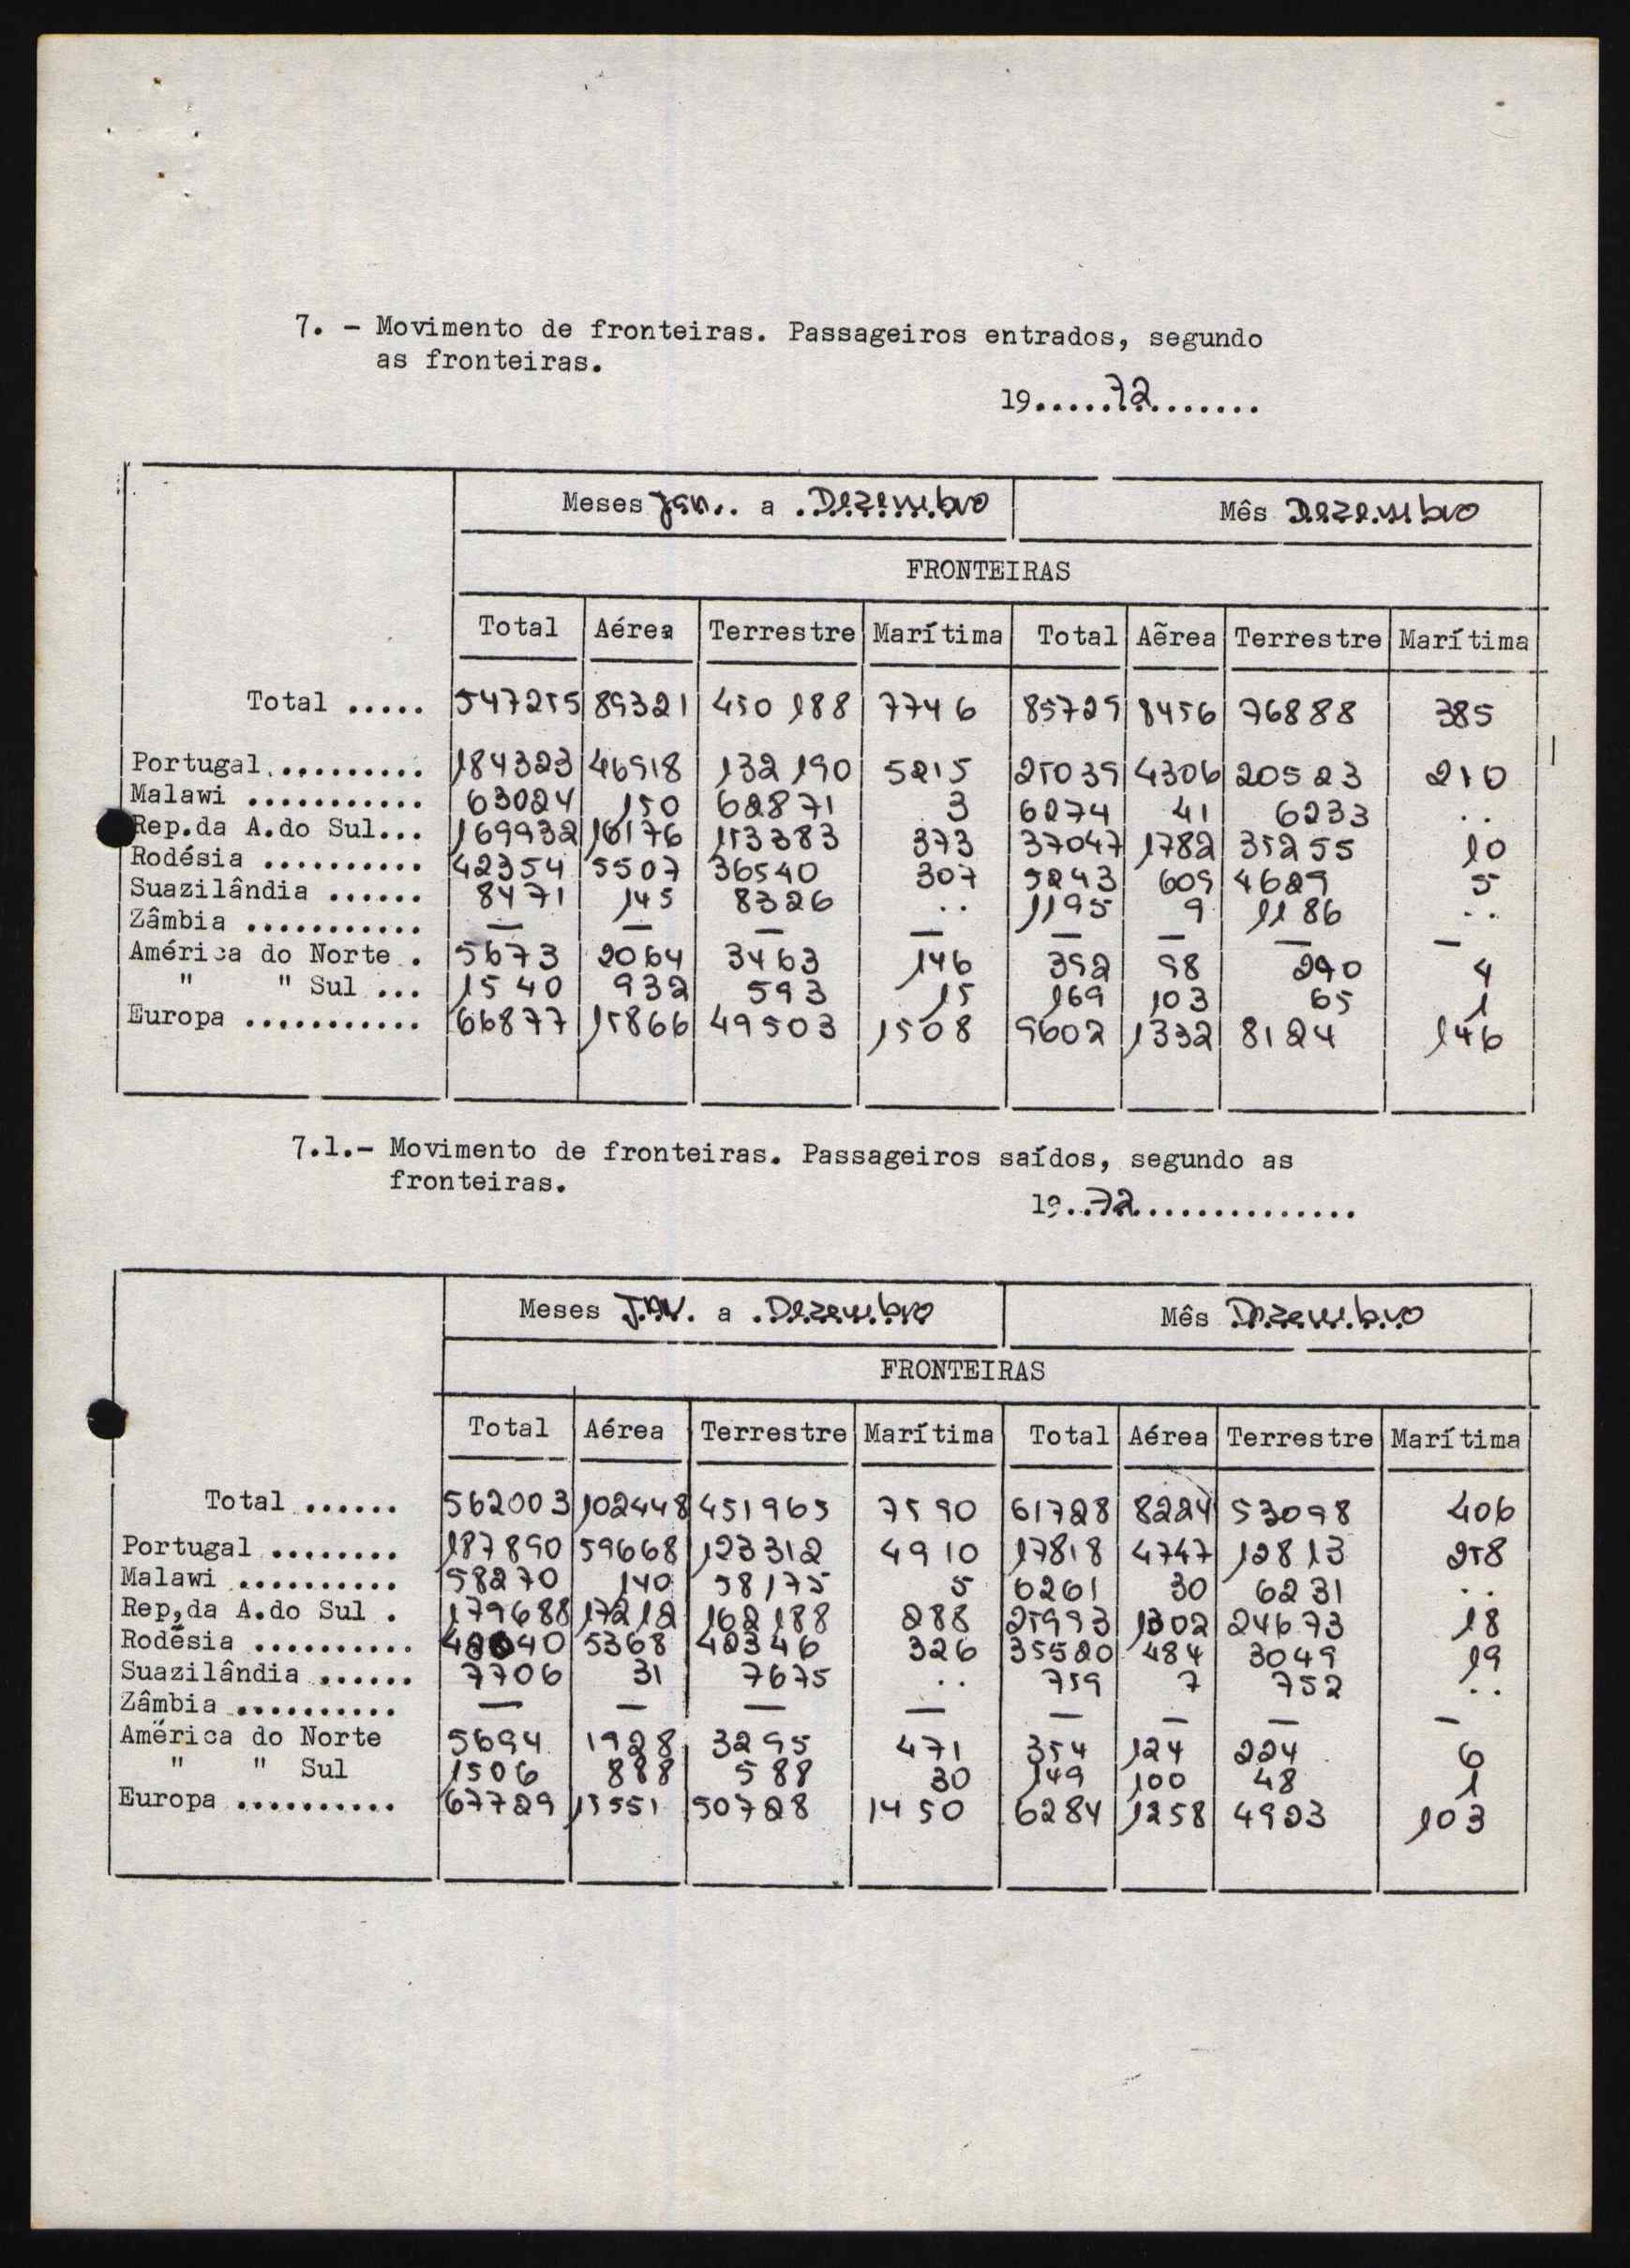 7. - Movimento de fronteiras. Passageiros entrados, segundo
as fronteiras.
19.....72.......
Meses Jan.. a .Dezembro Mês Dezembro
FRONTEIRAS
Total Aérea Terrestre Marítima Total Aẽrea Terrestre Marítima
Total ..... 547255 89321 450 188 7746 85729 8456 76888 385
Portugal.......... 184323 46918 132 190 5215 25039 4306 20523 210
Malawi ........... 63024 150 62871 3 6274 41 6233 ..
Rep.da A.do Sul... 169932 16176 153383 373 37047 1782 35255 10
Rodésia .......... 42354 5507 36540 307 5243 609 4629 5
Suazilândia ...... 8471 145 8326 .. 1195 9 1186 ..
Zâmbia ........... — — — — — — — —
América do Norte . 5673 2064 3463 146 392 98 290 4
" " Sul ... 1540 932 593 15 169 103 65 1
Europa ........... 66877 15866 49503 1508 9602 1332 8124 146
7.1.- Movimento de fronteiras. Passageiros saídos, segundo as
fronteiras.
19..72...............
Meses JAN. a .Dezembro Mês Dezembro
FRONTEIRAS
Total Aérea Terrestre Marítima Total Aérea Terrestre Marítima
Total ...... 562003 102448 451965 7590 61728 8224 53098 406
Portugal ........ 187890 59668 123312 4910 17818 4747 12813 258
Malawi .......... 58270 140 58175 5 6261 30 6231 ..
Rep,da A.do Sul . 179688 17212 162188 288 25993 1302 24673 18
Rodésia .......... 5368 42346 326 35520 484 3049 19
Suazilândia ...... 7706 31 7675 .. 759 7 752 ..
Zâmbia .......... — — — — — — — —
América do Norte 5694 1928 3295 471 354 124 224 6
" " Sul 1506 888 588 30 149 100 48 1
Europa .......... 67729 15551 50728 1450 6284 1258 4923 103